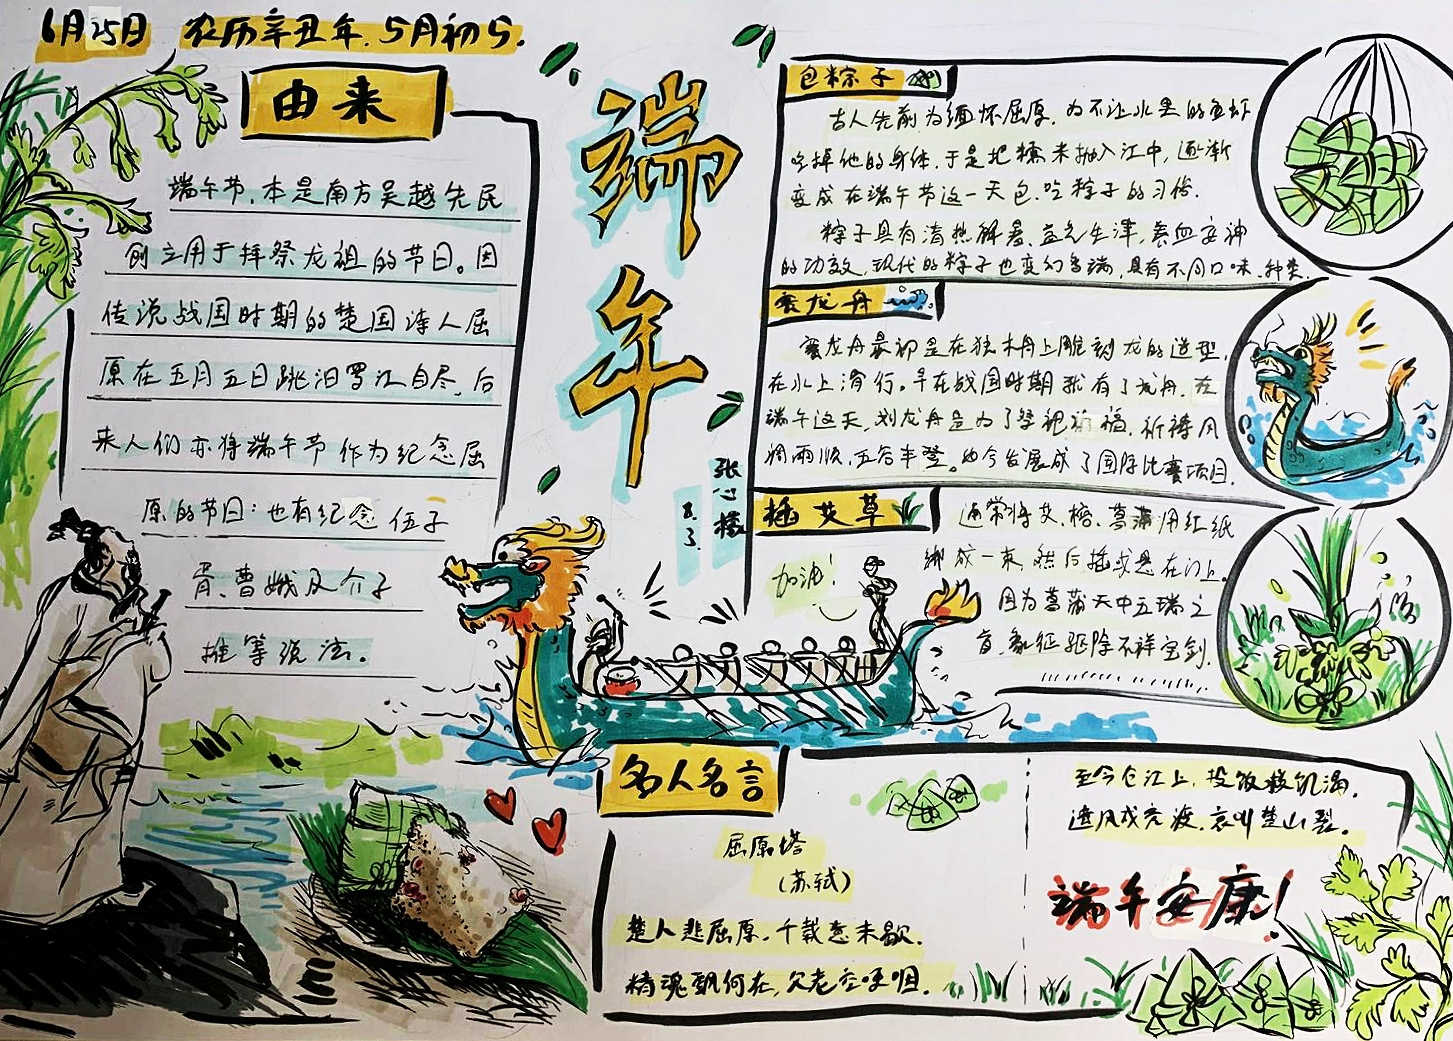 6月25日 农历辛丑年.5月初5.
由来
端午节,本是南方吴越先民
创立用于拜祭龙祖的节日。因
传说战国时期的楚国诗人屈
原在五月五日跳汨罗江自尽,后
来人们亦将端午节作为纪念屈
原的节日;也有纪念伍子
胥、曹娥及介子
推等说法。
端午
8.3.
加油!
包粽子
古人先前为缅怀屈原,为不让水里的鱼虾
吃掉他的身体,于是把糯米抛入江中,逐渐
变成在端午节这一天包、吃粽子的习俗.
粽子具有清热解暑、益气生津,养血安神
的功效,现代的粽子也变幻多端,具有不同口味、种类.
赛龙舟
赛龙舟最初是在独木舟上雕刻龙的造型,
在水上滑行。早在战国时期就有了龙舟.在
端午这天,划龙舟是为了祭祀祈福,祈祷风
调雨顺,五谷丰登。如今发展成了国际比赛项目.
插艾草
通常将艾、榕、菖蒲用红纸
绑成一束,然后插或悬在门上。
因为菖蒲天中五瑞之
首,象征驱除不祥宝剑.
名人名言
屈原塔
(苏轼)
楚人悲屈原,千载意未歇.
精魂飘何在,父老空哽咽.
至今仓江上,投饭救饥渴.
遗风成竞渡,哀叫楚山裂。
端午安康!